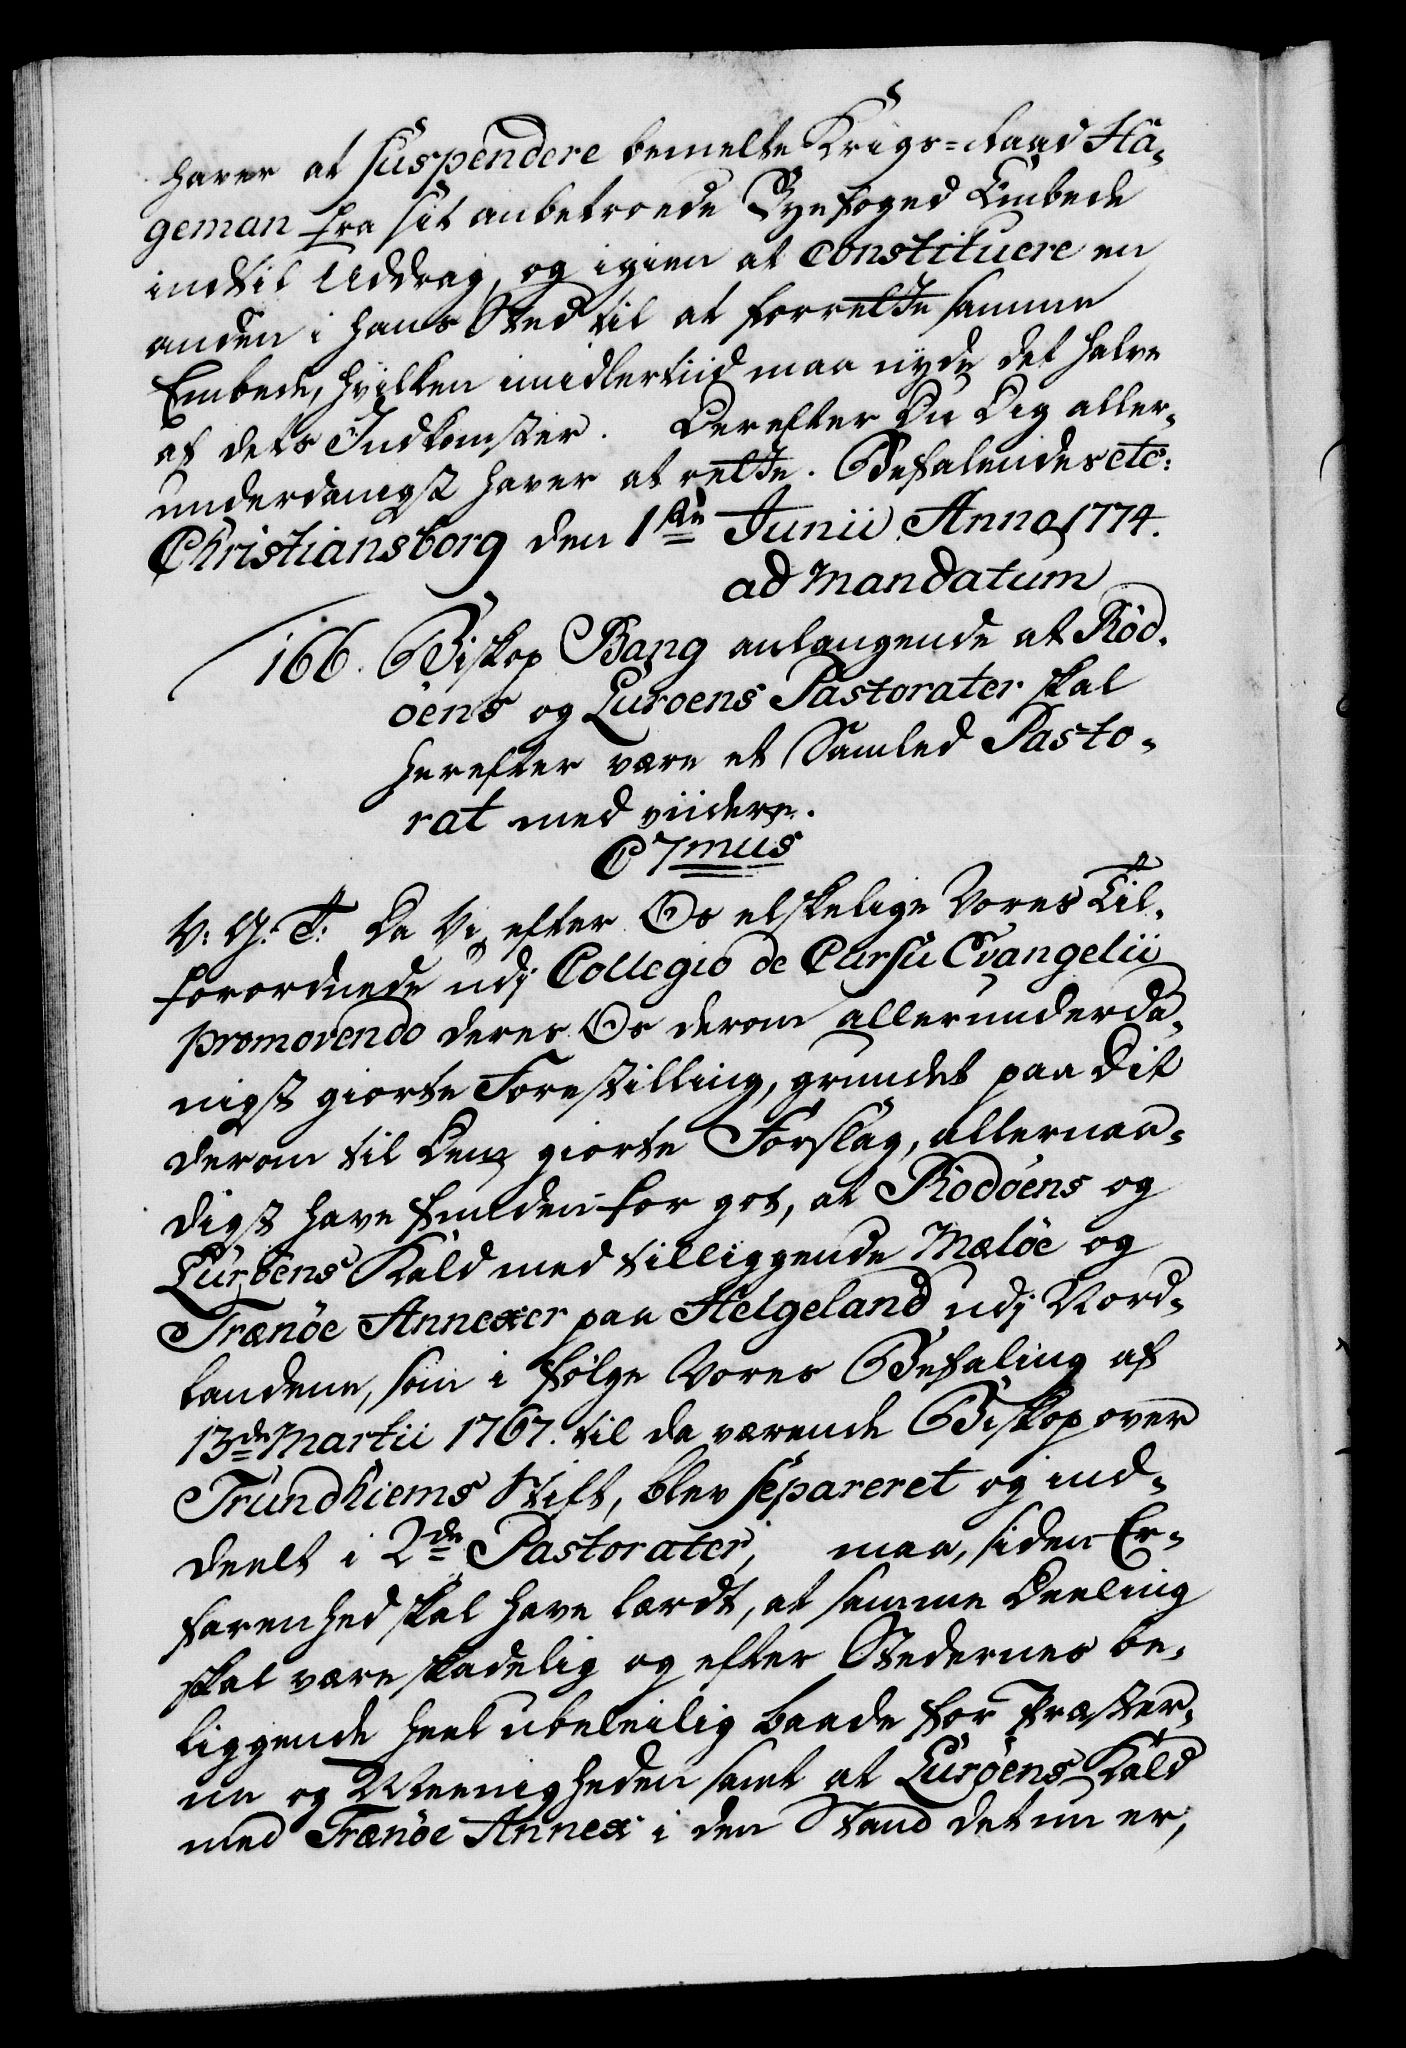 haver at suspendere bemelte Krigs-Raad Ha-
geman fra sit anbetroede Byefoged Embede
indtil Uddrag, og igien at constituere en
anden i hans Sted til at forrette samme
Embede, hvilken imidlertiid maa nyde det halve
af dets Indkomster. Derefter Du Dig aller-
underdanigst haver at rette. Befalendes etc:
Christiansborg den 1ste Junii Anno 1774.
ad Mandatum
166. Biskop Bang anlangende at Rød-
öens og Luröens Pastorater skal
herefter være et Samled Pasto-
rat med viidere.
C7mus
V: G: T: Da Vi efter Os elskelige Vores Til-
forordnede udj Collegio de Cursu Evangelii
promovendo deres Os derom allerunderda-
nigst giorte Forestilling, grundet paa Dit
derom til Dem giorte Forslag, allernaa-
digst have funden for got, at Rödöens og
Luröens Kald med tilliggende Mælöe og
Trænöe Annexer paa Helgeland udj Nord-
landene, som i følge Vores Befaling af
13de Martii 1767. til da værende Biskop over
Trundhiems Stift, blev separeret og ind-
deelt i 2de Pastorater, maa, siden Er-
farenhed skal have lærdt, at samme Deeling
skal være skadelig og efter Stedernes be-
liggende heel ubeleilig baade for Præster-
ne og Meenigheden samt at Luröens Kald
med Trænöe Annex i den Stand det nu er,